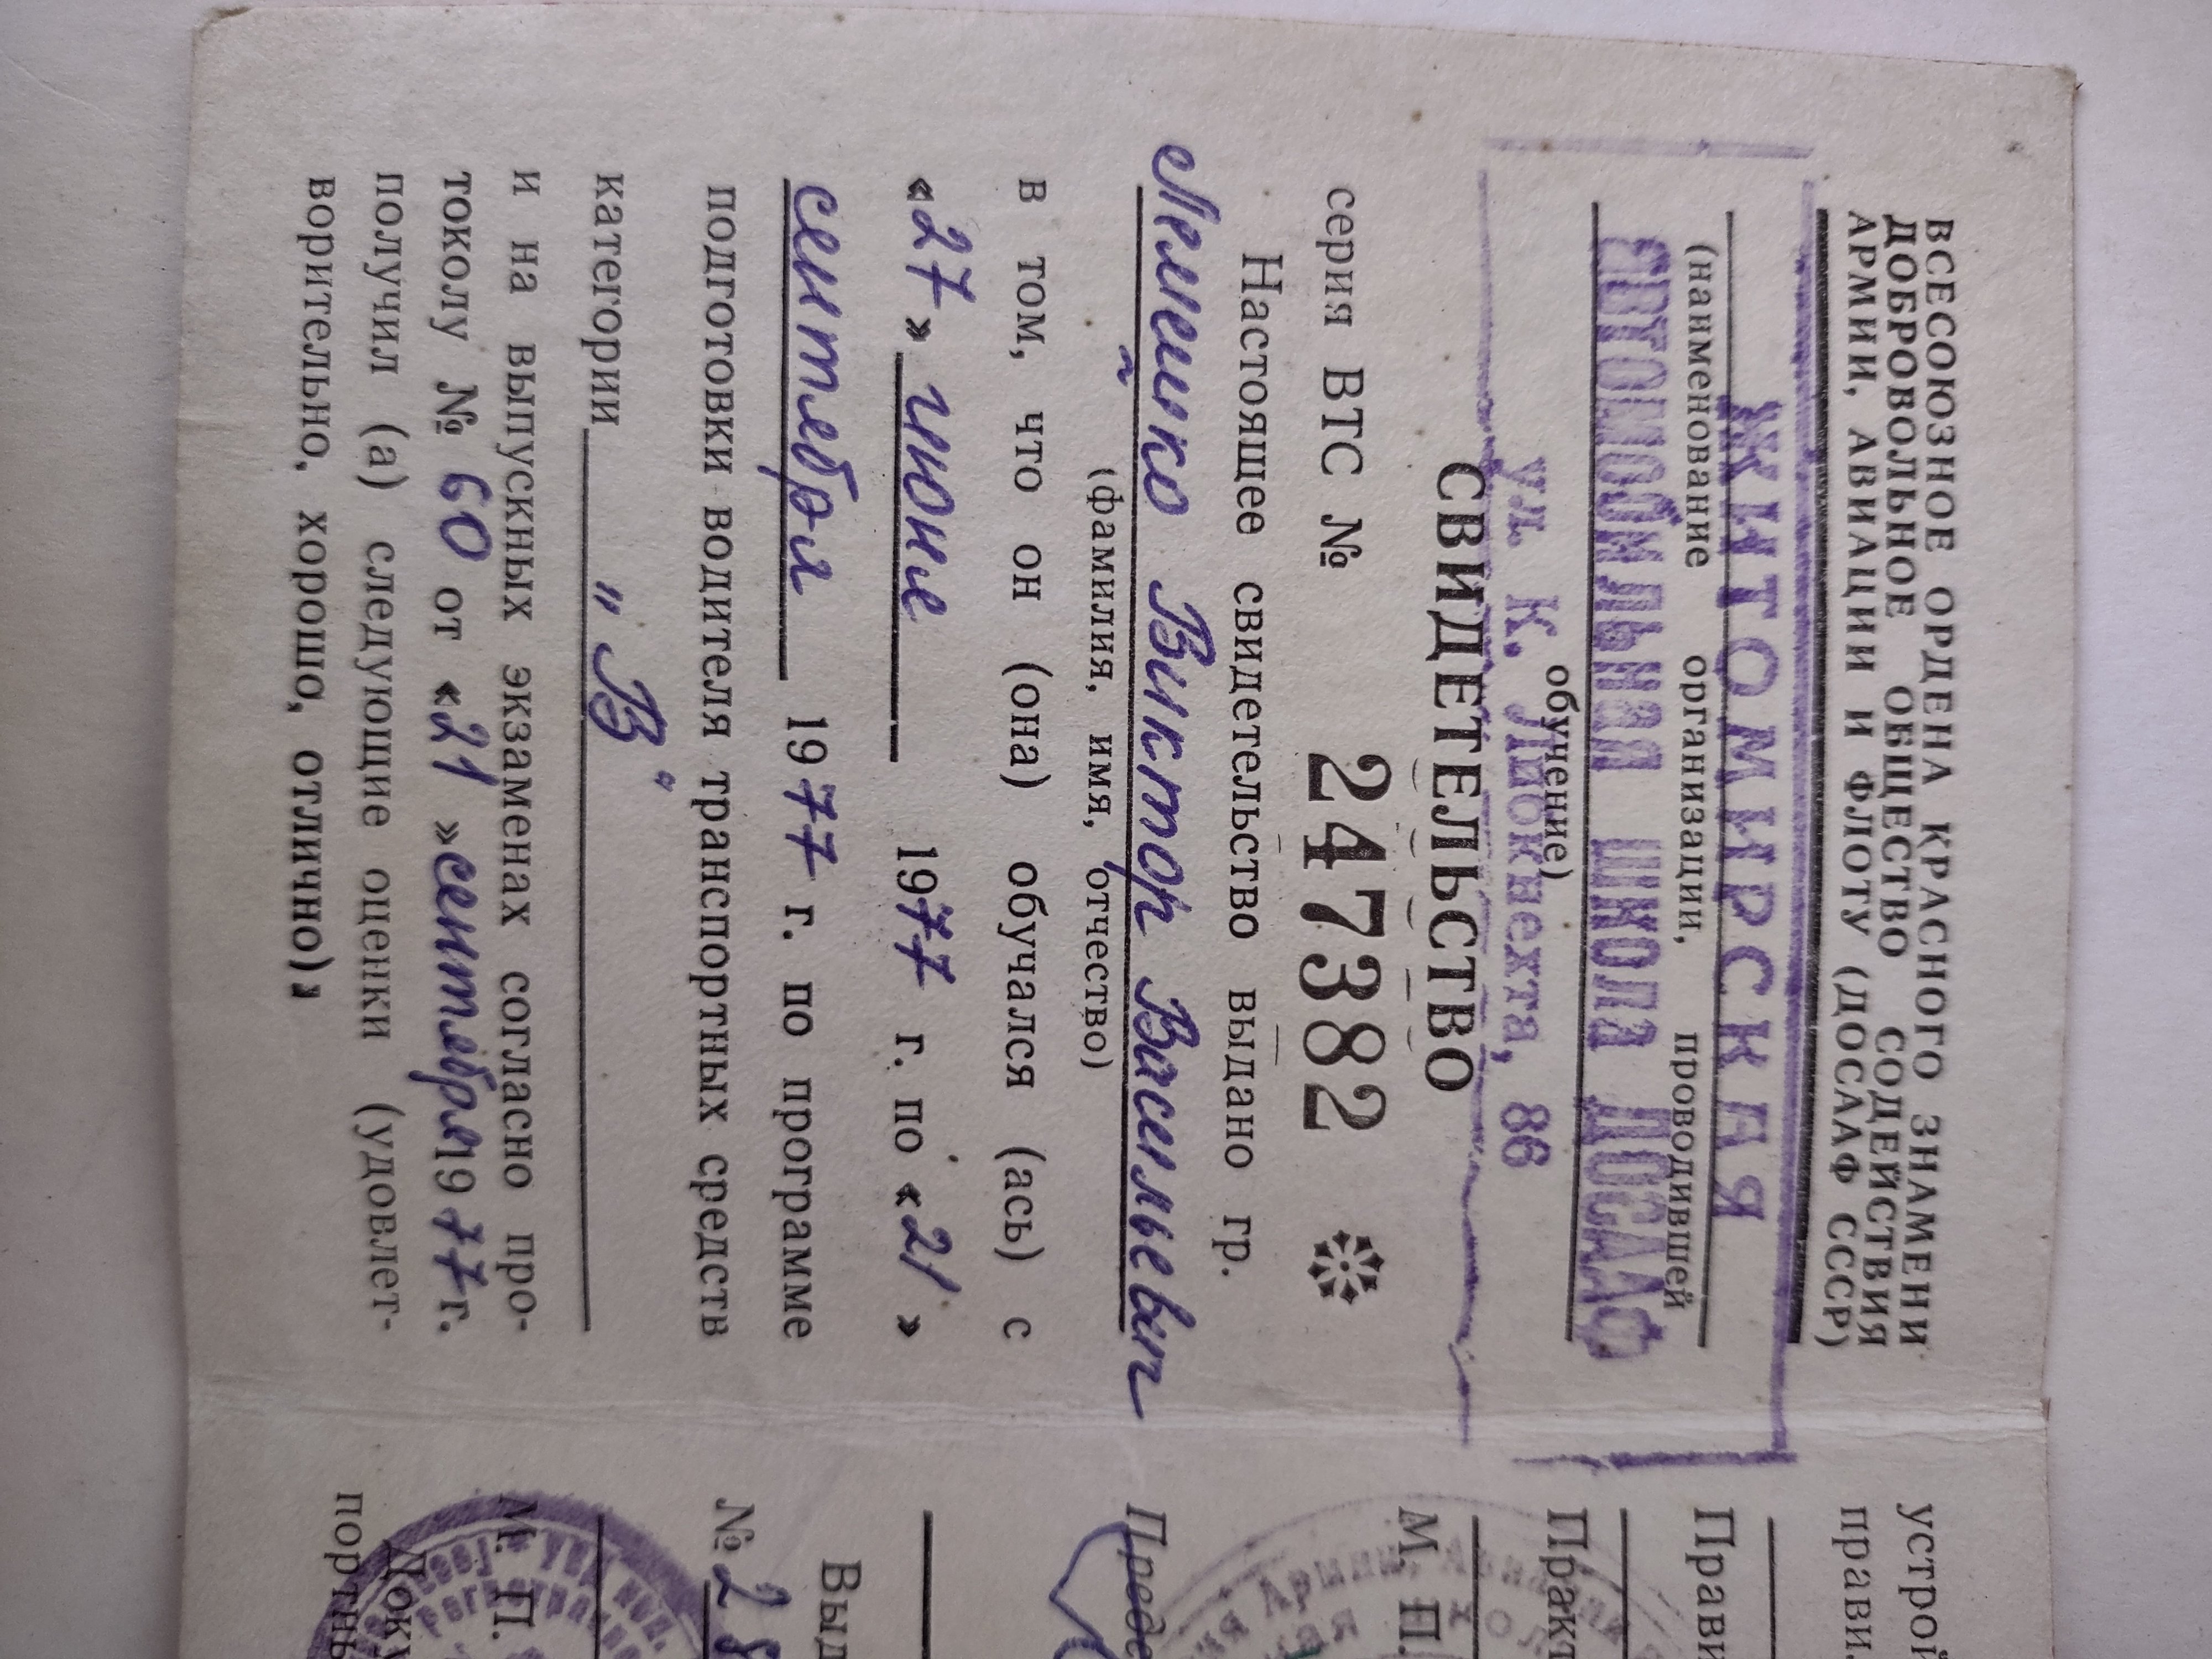 ВСЕСОЮЗНОЕ ОРДЕНА КРАСНОГО ЗНАМЕНИ
ДОБРОВОЛЬНОЕ ОБЩЕСТВО СОДЕЙСТВИЯ
АРМИИ, АВИАЦИИ И ФЛОТУ (ДОСААФ СССР)
ЖИТОМИРСКАЯ
(наименование организации, проводившей
АВТОМОБИЛЬНАЯ ШКОЛА ДОСААФ
обучение)
ул. К. Либкнехта, 86
СВИДЕТЕЛЬСТВО
серия ВТС № 247382
Настоящее свидетельство выдано гр.
Виктор Васильевич
(фамилия, имя, отчество)
в том, что он (она) обучался (ась) с
«27» июне 1977 г. по «21»
сентября 1977 г. по программе
подготовки водителя транспортных средств
категории "В"
и на выпускных экзаменах согласно про-
токолу № 60 от «21» сентября 1977 г.
получил (а) следующие оценки (удовлет-
ворительно, хорошо, отлично):
устрой
прави
Прави
Практ
М. П.
Армии,
Предс
Выд
№ 28
М. П.
Доку
портны